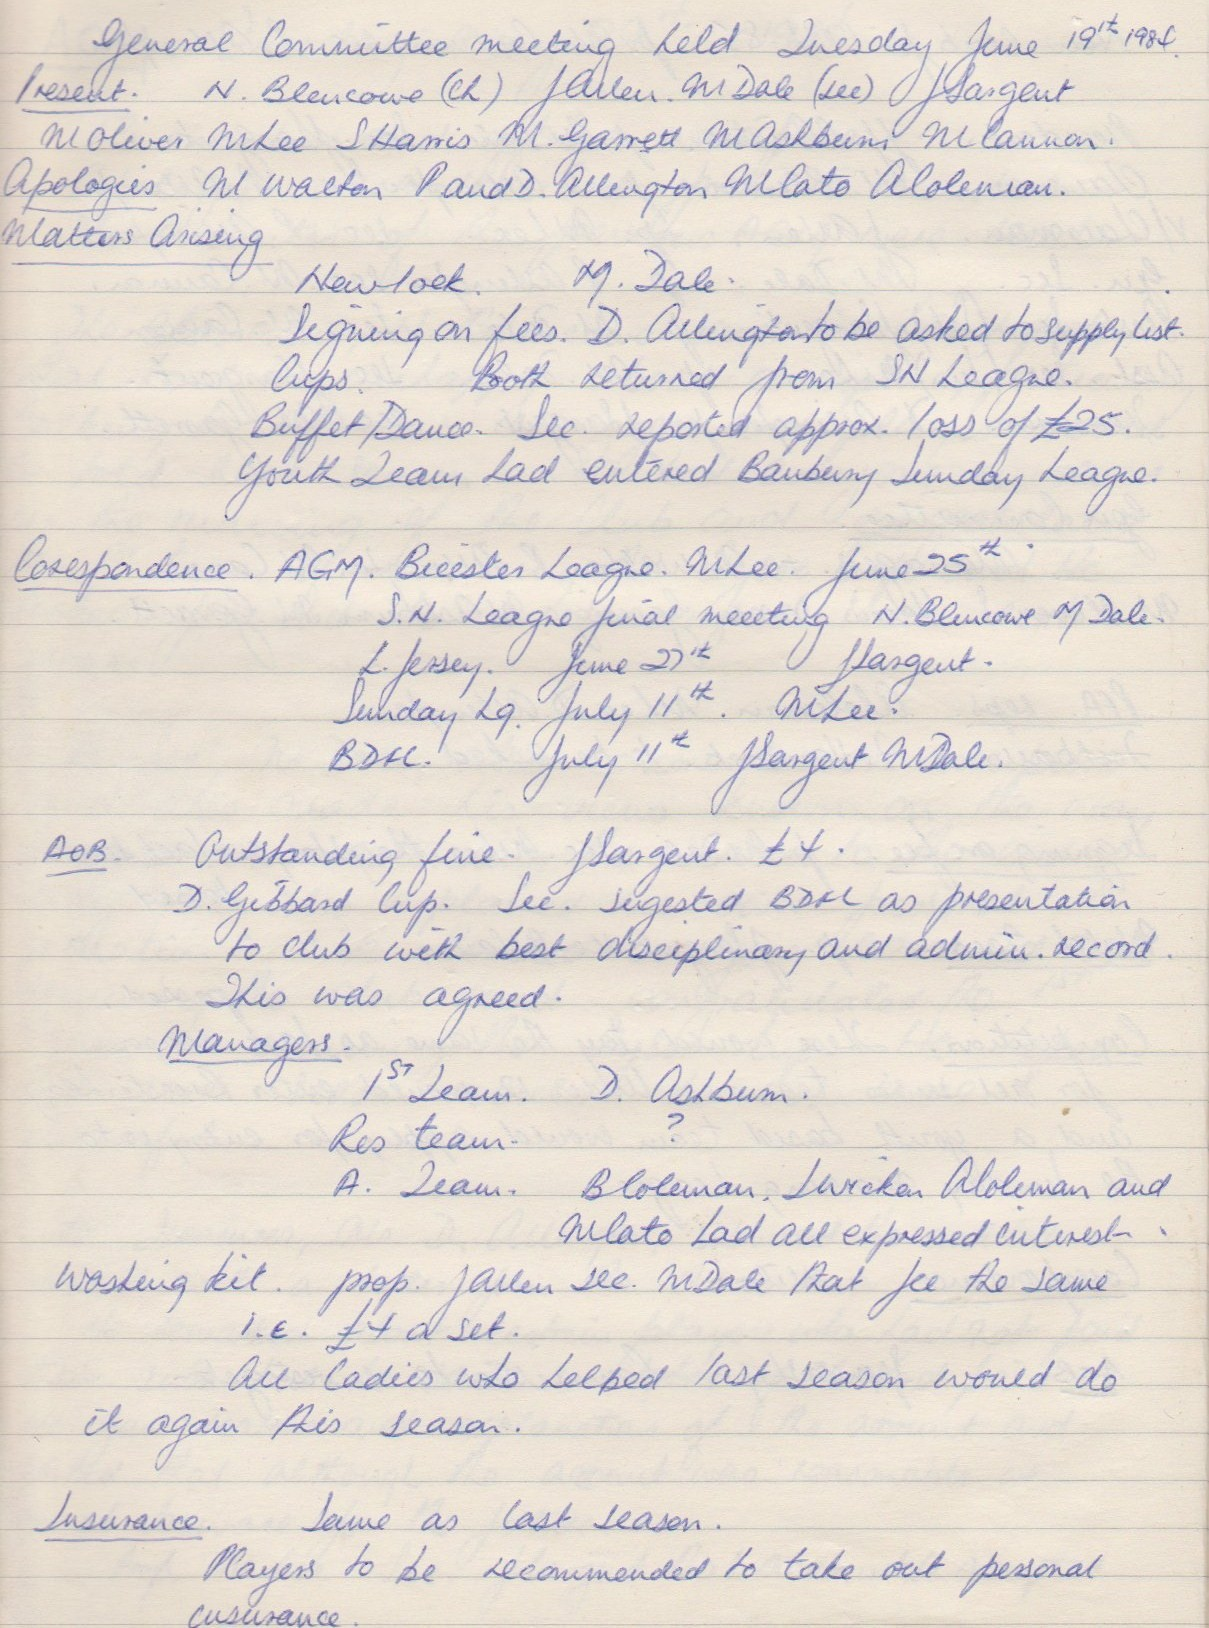 General Committee meeting held Tuesday June 19th 1984.
Present. N. Blencowe (Ch) J Allen. M Dale (sec) J Sargent
M Oliver M Lee S Harris M. Garrett M Ashburn M Cannon.
Apologies M Walton P and D. Allington M Cato A Coleman.
Matters Arising
New lock. M. Dale.
Signing on fees. D. Allington to be asked to supply list.
Cups. Both returned from SN League.
Buffet/Dance. Sec. reported approx. loss of £25.
Youth Team had entered Banbury Sunday League.
Corespondence. AGM. Bicester League. M Lee. June 25th.
S.N. League final meeting N. Blencowe M Dale.
L. Jersey. June 27th J Sargent.
Sunday Lg. July 11th. M Lee.
BDFL. July 11th J Sargent M Dale.
AOB. Outstanding fine. J Sargent. £4.
D. Gibbard Cup. Sec. sugested BDFL as presentation
to club with best disciplinary and admin. record.
This was agreed.
Managers.
1ST Team. D. Ashburn.
Res team. ?
A. Team. B Coleman, A Coleman and
M Cato had all expressed interest.
Washing kit. prop. J Allen sec. M Dale that fee the same
i.e. £4 a set.
All ladies who helped last season would do
it again this season.
Insurance. Same as last season.
Players to be recommended to take out personal
insurance.